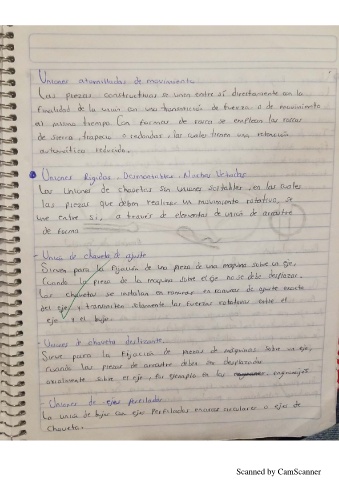 Uniones atornilladas de movimiento
Las piezas constructivas se unen entre sí directamente con la
finalidad de la unión con una transmisión de fuerza o de movimiento
al mismo tiempo. Con formas de rosca se emplean las roscas
de sierra, trapecio o redondas, las cuales tienen una retención
automática reducida.
Uniones Rígidas, Desmontables,
Las Uniones de chavetas son uniones soltables, en las cuales
las piezas que deben realizar un movimiento rotativo, se
une entre si, a través de elementos de unión de arrastre
de forma
- Union de chaveta de ajuste
Sirven para la fijación de una pieza de una maquina sobre un eje,
Cuando la pieza de la maquina sobre el eje no se debe desplazar.
Las chavetas se instalan en ranuras en ranuras de ajuste exacto
del eje y transmiten solamente las fuerzas rotatorias entre el
eje y el buje.
- Uniones de chaveta deslizante
Sirve para la fijación de piezas de maquinas sobre un eje,
Cuando las piezas de arrastre deben ser desplazadas
axialmente sobre el eje, Por ejemplo en los engranajes
- Uniones de ejes perfilados
La union de bujes con ejes perfilados o ejes de
Chavetas.
Scanned by CamScanner